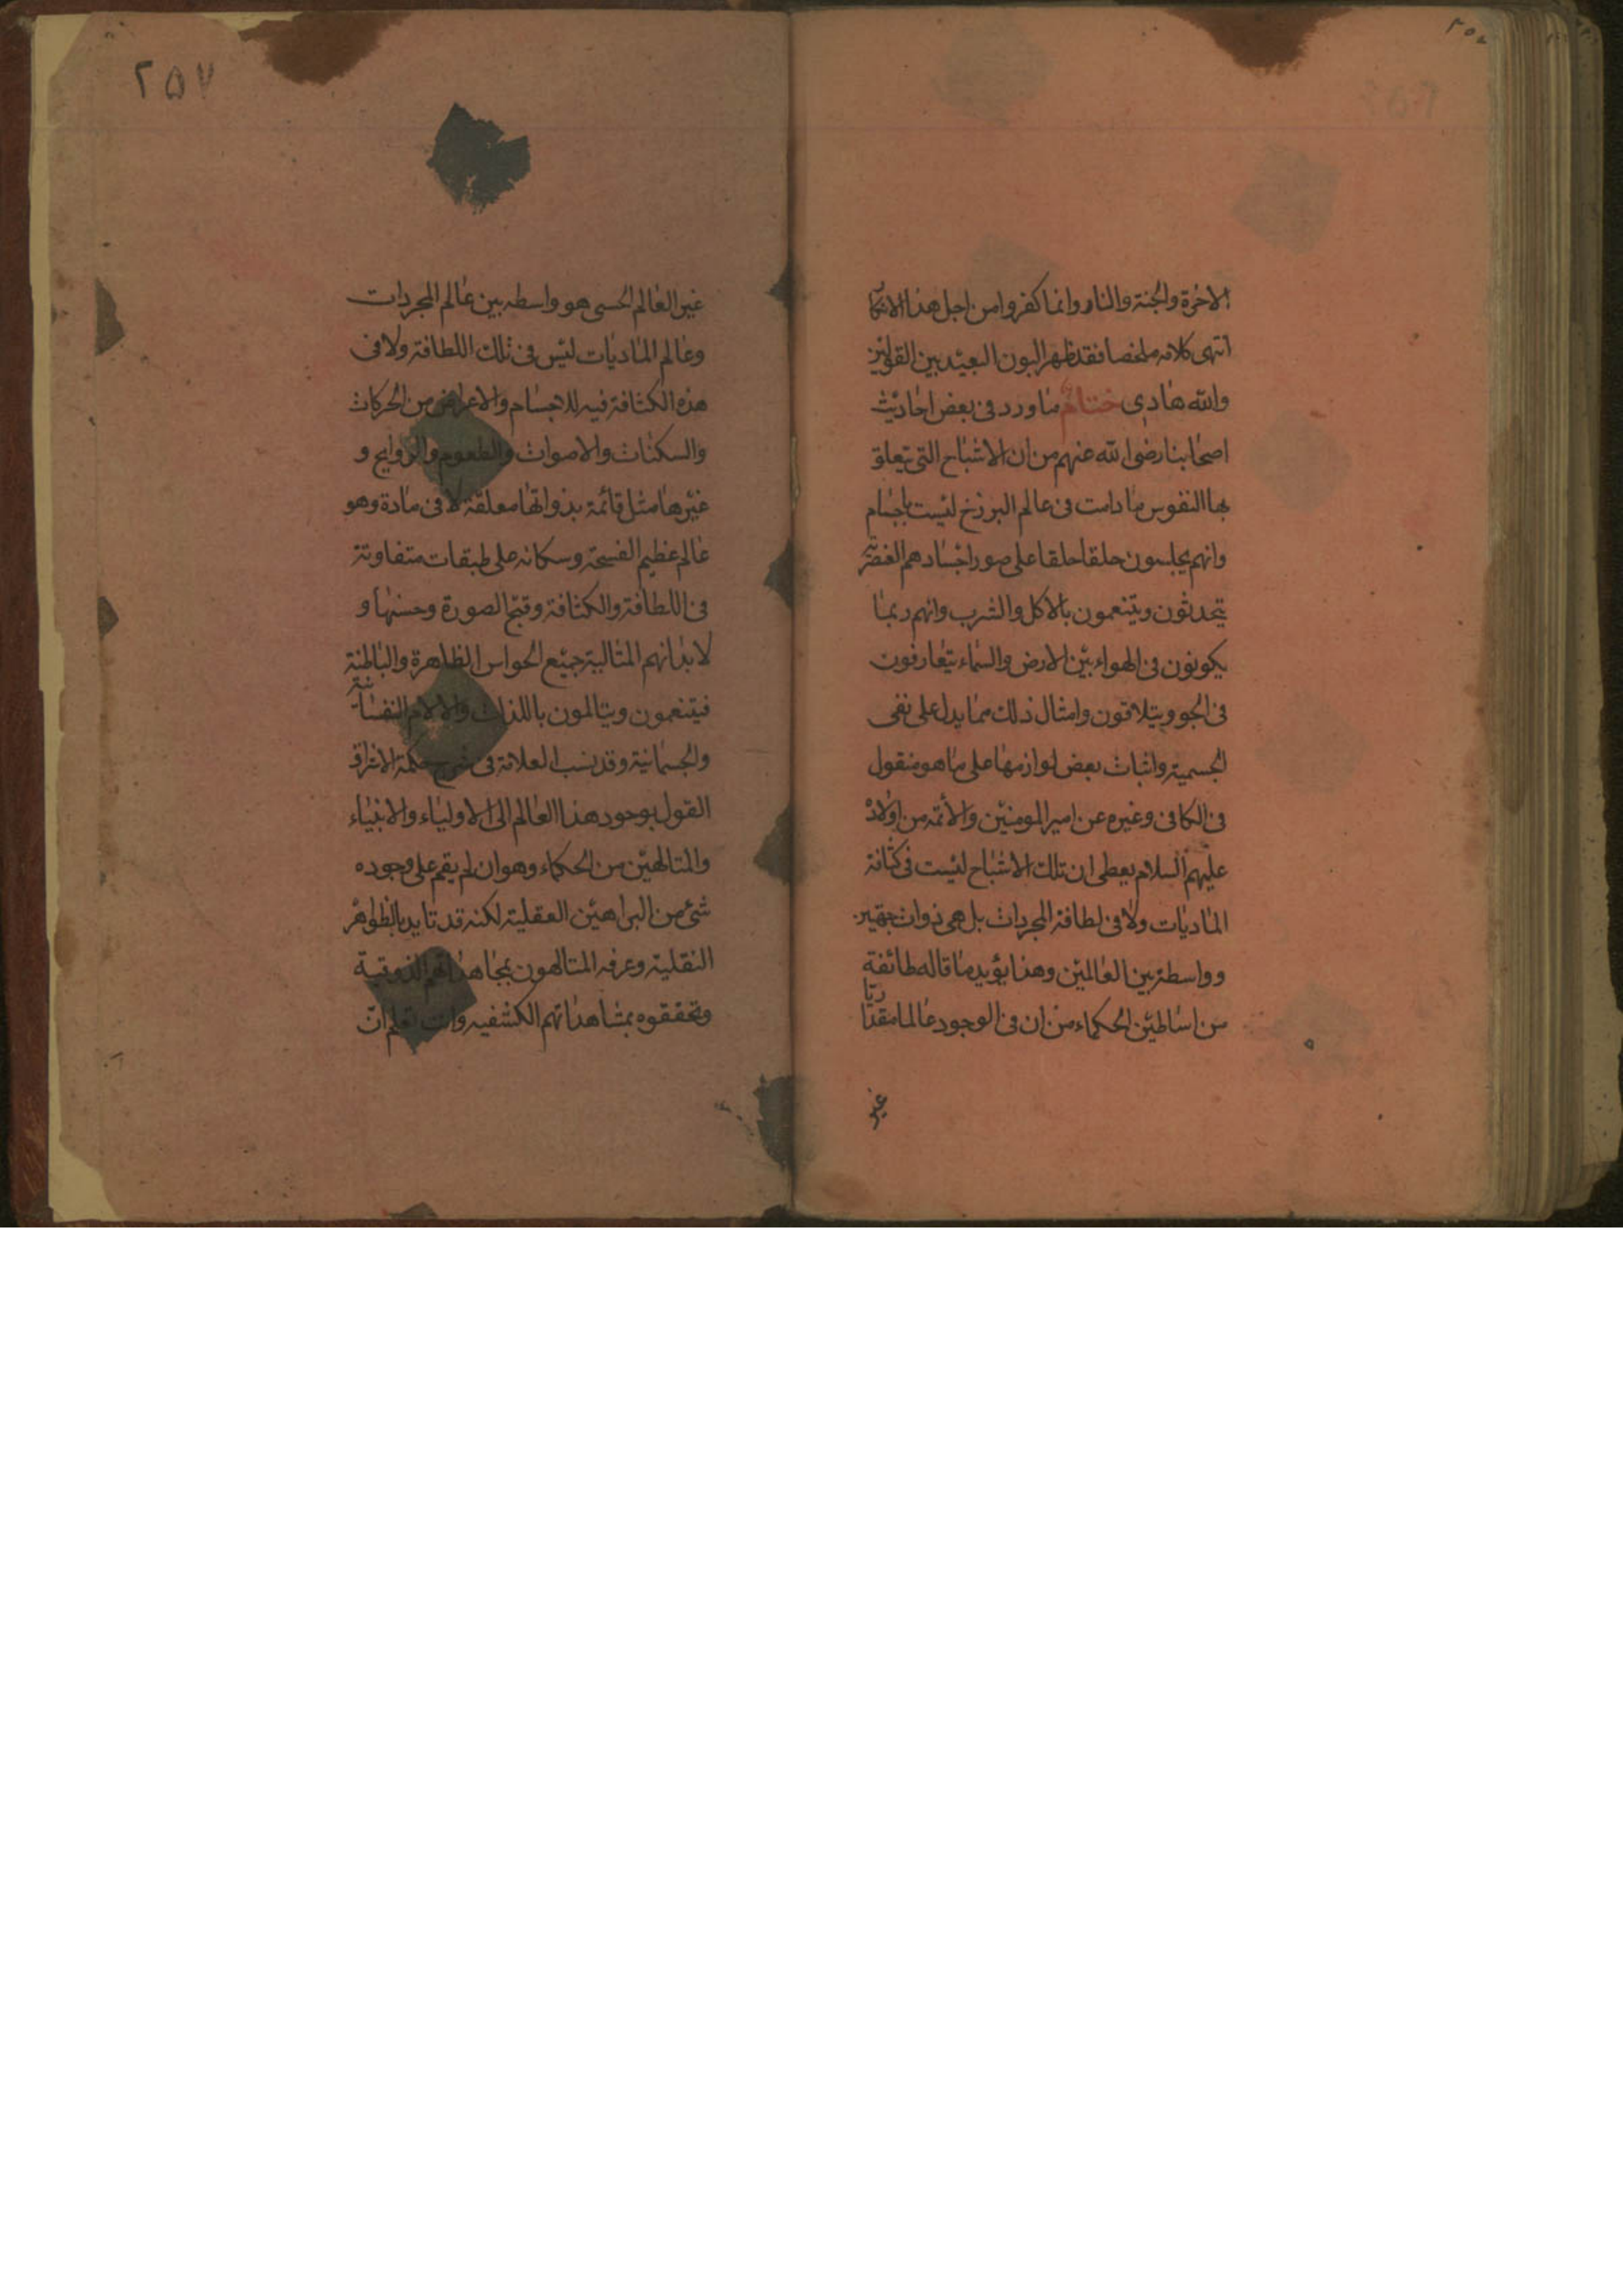 الاخرة والجنة والنار وانما كفروا من اجل هذا الانكار
انتهى كلامه ملخصا فقد ظهر البون البعيد بين القولين
والله هادى ختام ما ورد فى بعض احاديث
اصحابنا رضوا الله عنهم من ان الاشباح التى تتعلق
بها النفوس ما دامت فى عالم البرزخ ليست باجسام
وانهم يجلسون حلقا حلقا على صور اجسادهم العنصرية
يتحدثون ويتنعمون بالاكل والشرب وانهم ربما
يكونون فى الهواء بين الارض والسماء يتعارفون
فى الجو ويتلاقون وامثال ذلك مما يدل على نفى
الجسمية واثبات بعض لوازمها على ما هو منقول
فى الكافى وغيره عن امير المومنين والأئمه من اولاده
عليهم السلام يعطى ان تلك الاشباح ليست فى كثافة
الماديات ولا فى لطافة المجردات بل هى ذوات جهتين
وواسطة بين العالمين وهذا يؤيد ما قاله طائفة
من اساطين الحكماء من ان فى الوجود عالما مقداريا
غير
٢٥٧
غير العالم الحسى هو واسطه بين عالم المجردات
وعالم الماديات ليس فى تلك اللطافة ولا فى
هذه الكثافة فيه للاجسام والاعراض من الحركات
والسكنات والاصوات والطعوم والروايح و
غيرها مثل قائمة بذواتها معلقة لا فى مادة وهو
عالم عظيم الفسحة وسكانه على طبقات متفاوتة
فى اللطافة والكثافة وقبح الصورة وحسنها و
لابدانهم المثالية جميع الحواس الظاهرة والباطنة
فيتنعمون ويتالمون باللذات والالام النفسانية
والجسمانية وقد نسب العلامة فى شرح حكمة الاشراق
القول بوجود هذا العالم الى الاولياء والانبياء
والمتالهين من الحكماء وهو ان لم يقم على وجوده
شئ من البراهين العقلية لكنه قد تايد بالظواهر
النقلية وعرفه المتالهون بمجاهداتهم الذوقية
وتحققوه بمشاهداتهم الكشفيه وانت تعلم انّ